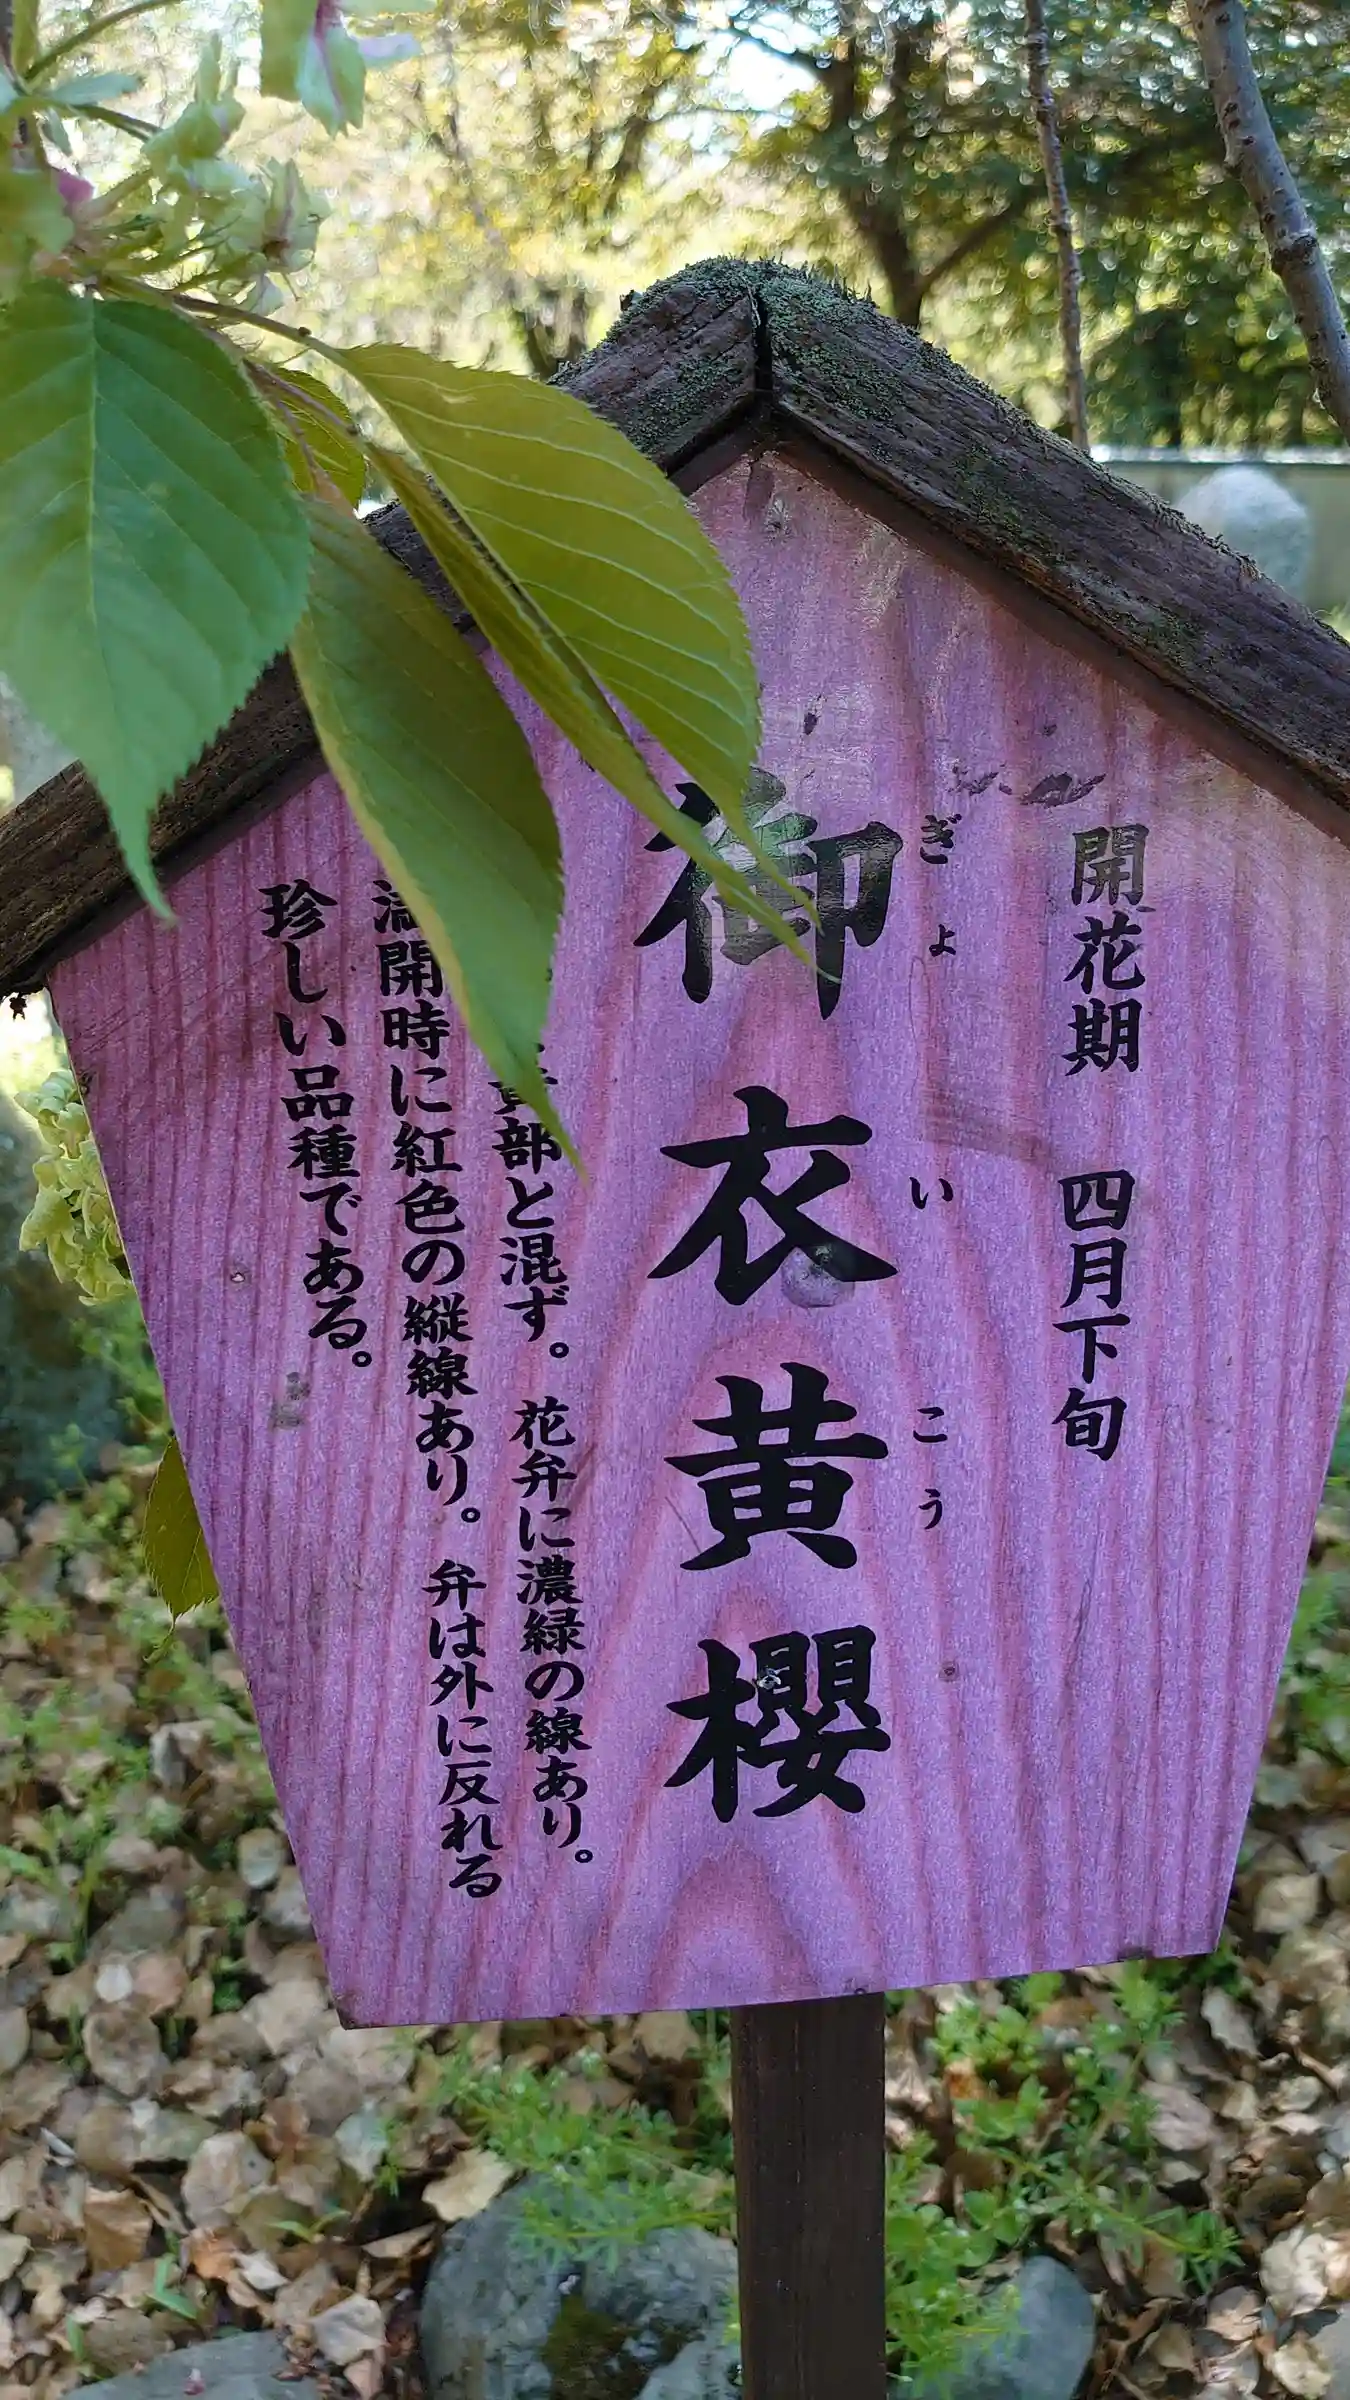 開花期 四月下旬
ぎょ い こう
御衣黄櫻
黄部と混ず。花弁に濃緑の線あり。
満開時に紅色の縦線あり。弁は外に反れる
珍しい品種である。